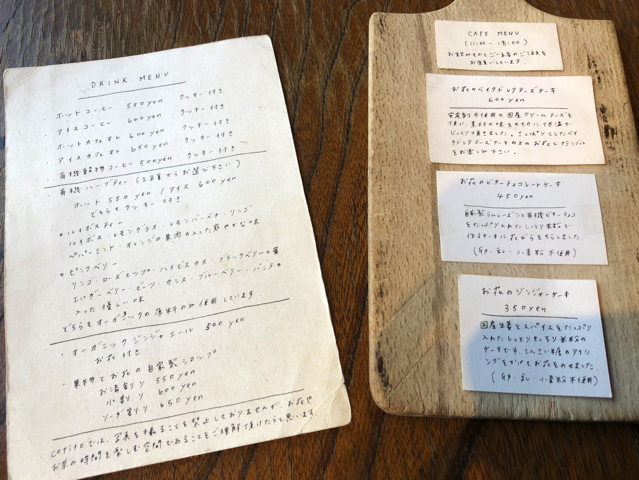 DRINK MENU
・ホットコーヒー 550yen クッキー付き
・アイスコーヒー 600yen クッキー付き
・ホットカフェオレ 600yen クッキー付き
・アイスカフェオレ 650yen クッキー付き
・有機穀物コーヒー 500yen クッキー付き
・有機ハーブティー (2種類からお選び下さい)
ホット 550yen / アイス 600yen
どちらもクッキー付き
●ルイボスティー
ルイボス・レモングラス・レモンバーベナ・リンゴ
ペパーミント・オレンジの果肉の入った爽やかな味
●ピンクベリー
リンゴ・ローズヒップ・ハイビスカス・ブラックベリーの葉
エルダーベリー・ビーツ・カシス・ブルーベリー・バニラの
入った優しい味
どちらもオーガニックの原料のみ使用しています
・オーガニックジンジャエール 500yen
お花付き
・果物とお花の自家製シロップ
お湯割り 550yen
水割り 600yen
ソーダ割り 650yen
cotitoでは、写真を撮ることを禁止しておりませんが、お花や
お茶の時間を楽しむ空間であることをご理解頂けたらと思います
CAFE MENU
(11:00 - 18:00)
お飲みものとご一緒のご注文を
お願いしています.
お花のベイクドレアチーズケーキ
600yen
安定剤不使用の国産クリームチーズを
じっくり焼きました。さっぱりとしたベイ
クドレアチーズケーキの上のお花とクランブル
をお楽しみ下さい.
お花のビターチョコレートケーキ
450yen
自家製ラムレーズンと有機ビターチョコ
をたっぷり入れたしっとり米粉で
作るケーキにお花がらをちらしました.
(卵・乳・小麦粉不使用)
お花のジンジャーケーキ
350yen
国産生姜とスパイスをたっぷり
入れたしっとりもっちり米粉の
ケーキです。てんさい糖のアイシ
ングをかけてお花をのせました.
(卵・乳・小麦粉不使用)